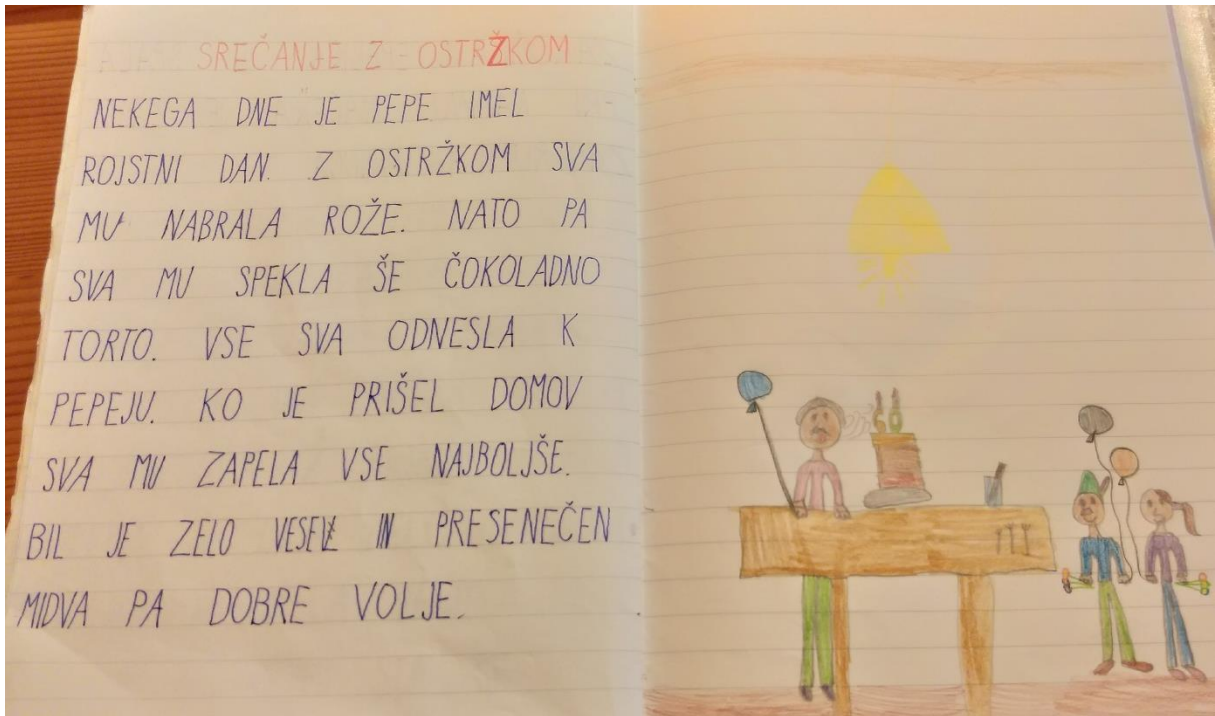 SREČANJE Z OSTRŽKOM
NEKEGA DNE JE PEPE IMEL
ROJSTNI DAN. Z OSTRŽKOM SVA
MU NABRALA ROŽE. NATO PA
SVA MU SPEKLA ŠE ČOKOLADNO
TORTO. VSE SVA ODNESLA K
PEPEJU. KO JE PRIŠEL DOMOV
SVA MU ZAPELA VSE NAJBOLJŠE.
BIL JE ZELO VESEL IN PRESENEČEN
MIDVA PA DOBRE VOLJE.